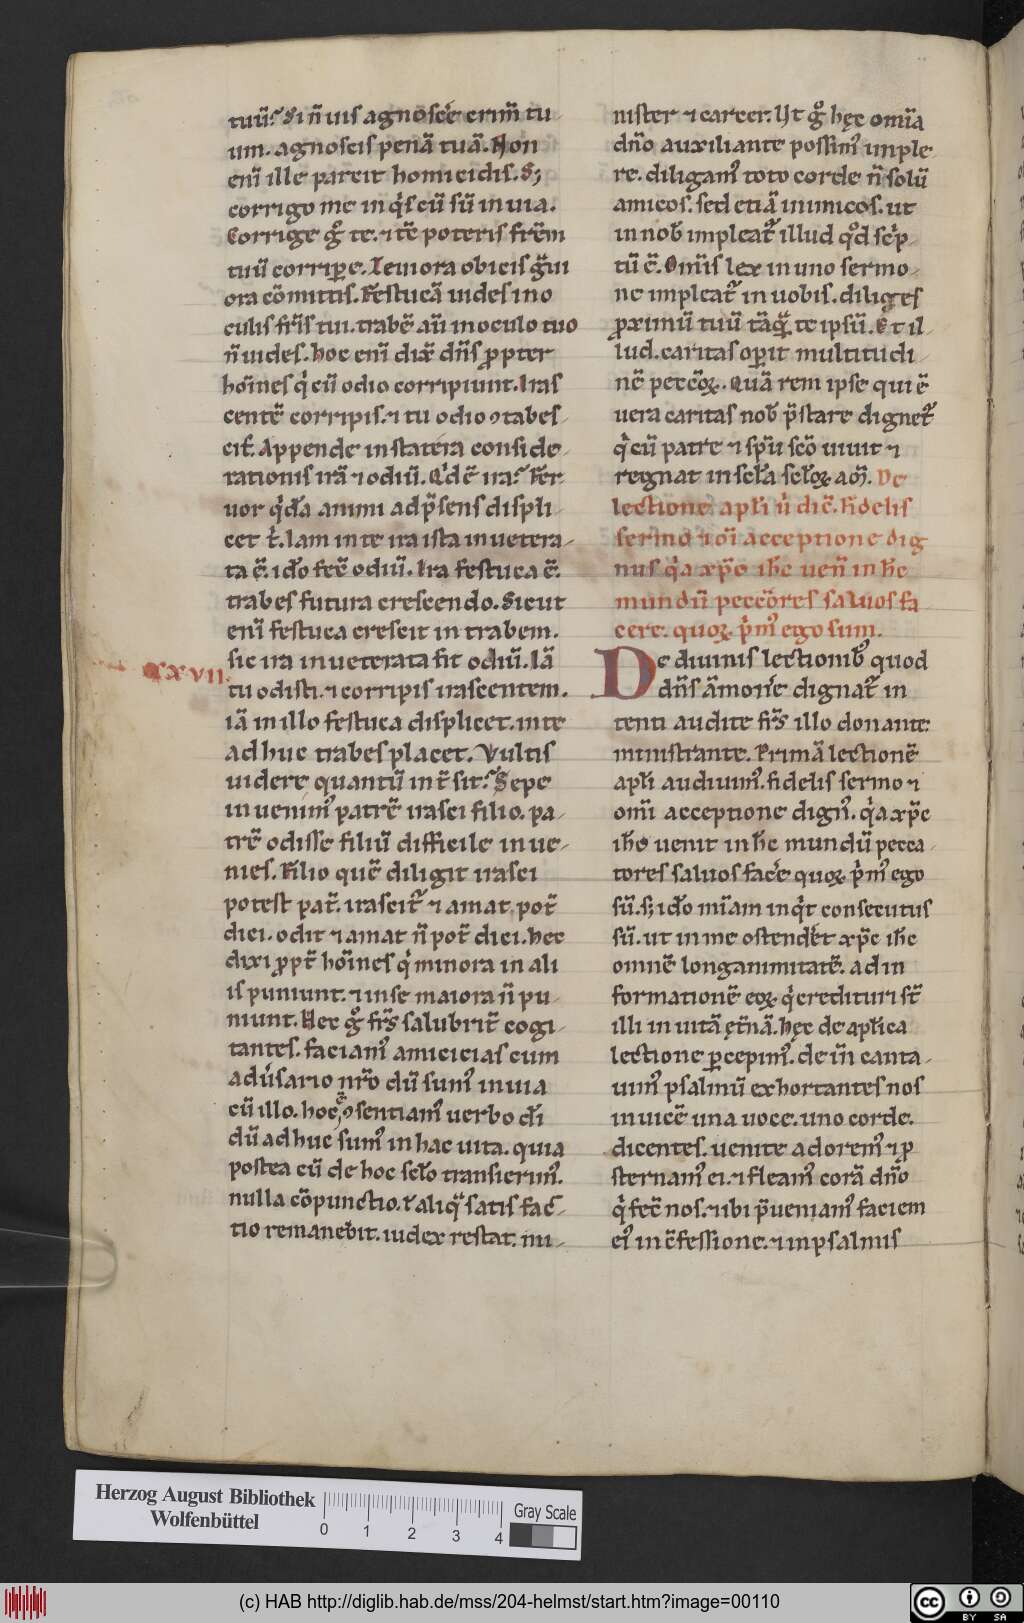 tuū? Si n̄ uis agnoscẽ crim̄ tu-
um. agnoscis penā tuā. Non
eni ille parcit homicidis. S;
corrigo me inq's cū sū in uia.
Corrige g̊ te. ⁊ tc̄ poteris frēm
tuū corriꝑe. Leuiora obicis g̃ui
ora cōmittis. Festucā uides in o
culis fr̄is tui. trabē aū in oculo tuo
n̄ uides. hoc eni dix̄ dn̄s ꝓpter
hoīnes q' cū odio corripiunt. Iras
centē corripis. ⁊ tu odio ꝯtabes-
cit. Appende in statera conside-
rationis irā ⁊ odiū. Q'd ē ira? Fer
uor q'dā animi ad p̄sens displi-
cet t'. Iam in te ira ista inuetera-
ta ē. ido fcē odiū. Ira festuca ē.
trabes futura crescendo. Sicut
eni festuca crescit in trabem.
sic ira inueterata fit odiū. Iā
tu odisti. ⁊ corripis irascentem.
iā in illo festuca displicet. in te
adhuc trabes placet. Vultis
uidere quantū int̄ sit? Sepe
inuenim' patrē irasci filio. pa-
trē odisse filiū difficile inue-
nies. Filio quē diligit irasci
potest pat̄. irascit' ⁊ amat pot̄
dici. odit ⁊ amat n̄ pot̄ dici. hec
dixi ꝓpt̄ hoīnes q' minora in ali
is puniunt. ⁊ in se maiora n̄ pu-
niunt. Hec g̊ fr̄s salubrit̄ cogi-
tantes. faciam' amicicias cum
adu'sario nr̄o dū sum' in uia
cū illo. hoc ē, ꝯsentiam' uerbo dī
dū adhuc sum' in hac uita. quia
postea cū de hoc sclo transierim'.
nulla cōpunctio. t aliq̃ satis fac-
tio remanebit. iudex restat. mi-
nister ⁊ carcer. Ut g̊ hęc omīa
dn̄o auxiliante possim' imple
re. diligam' toto corde n̄ solū
amicos. sed etiā inimicos. ut
in nob impleat' illud qd scrip-
tū ē. Om̄is lex in uno sermo-
ne impleat' in uobis. diliges
ꝓximū tuū tāq̃ te ipsū. Et il-
lud. caritas oꝑit multitudi-
nē peccōꝝ. Quā rem ipse qui ē
uera caritas nob p̄stare dignet'
q' cū patre ⁊ sp̄u scō uiuit ⁊
regnat in scła scłoꝝ am̄. De
lectione apłi ū dic̄. Fidelis
sermo ⁊ oī acceptione dig
nus q'a xp̄c ih̄c uen̄ in h̄c
mundū peccōres saluos fa
cere. quoꝝ p'm' ego sum.
XXVII.
De diuinis lectionib' quod
dn̄s āmonẽ dignat' in
tenti audite fr̄s illo donante
ministrante. Primā lectionē
apłi audiuim'. fidelis sermo ⁊
omī acceptione dign'. q'a xp̄c
ih̄c uenit in h̄c mundū pecca-
tores saluos facẽ quoꝝ p'm' ego
sū. s; ido mīam inq't consecutus
sū. ut in me ostendẽt xp̄c ih̄c
omnē longanimitatē. ad in
formationē eoꝝ q' credituri st̄
illi in uitā ęt̄nā. hęc de apłica
lectione ꝑcepim'. dein̄ canta-
uim' psalmū exhortantes nos
inuicē una uoce. uno corde.
dicentes. uenite adorem' ⁊ ꝓ
sternam' ei. ⁊ fleam' corā dn̄o
q' fec̄ nos. ⁊ ibi p̄ueniam' faciem
ei' in c̄fessione. ⁊ in psalmis
Herzog August Bibliothek
Wolfenbüttel
0 1 2 3 4
Gray Scale
(c) HAB http://diglib.hab.de/mss/204-helmst/start.htm?image=00110
cc BY SA